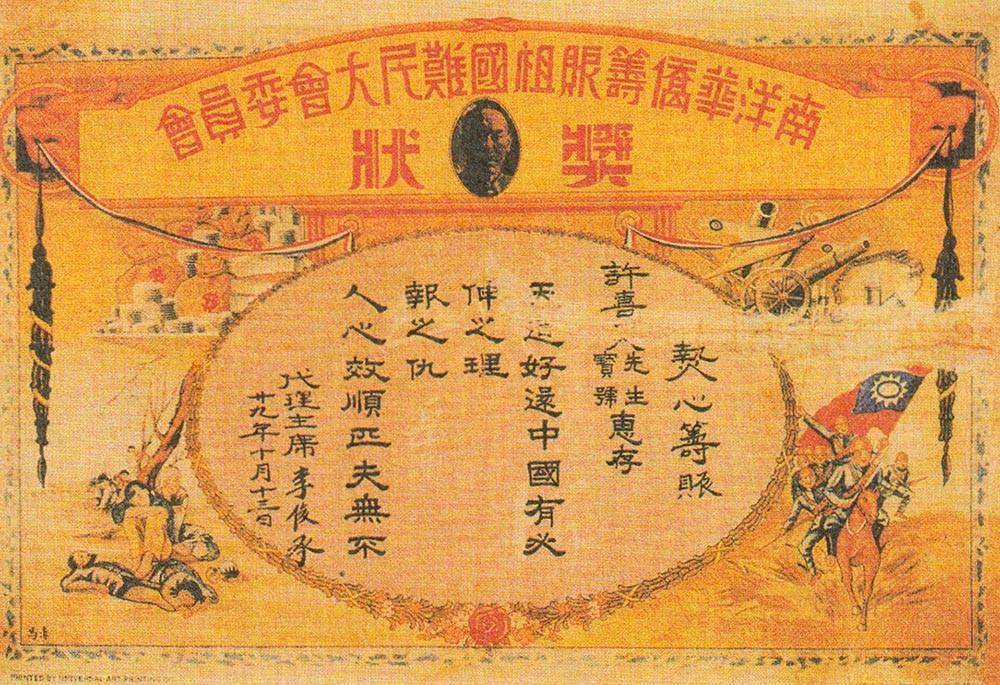 南洋華僑籌賑祖國難民大會委員會
獎狀
熱心籌賑
許喜 先生寶號惠存
天道好還中國有必
伸之理
人心效順匹夫無不
報之仇
代理主席李俊承
廿九年十月十三日
PRINTED BY UNIVERSAL ART PRINTING CO.